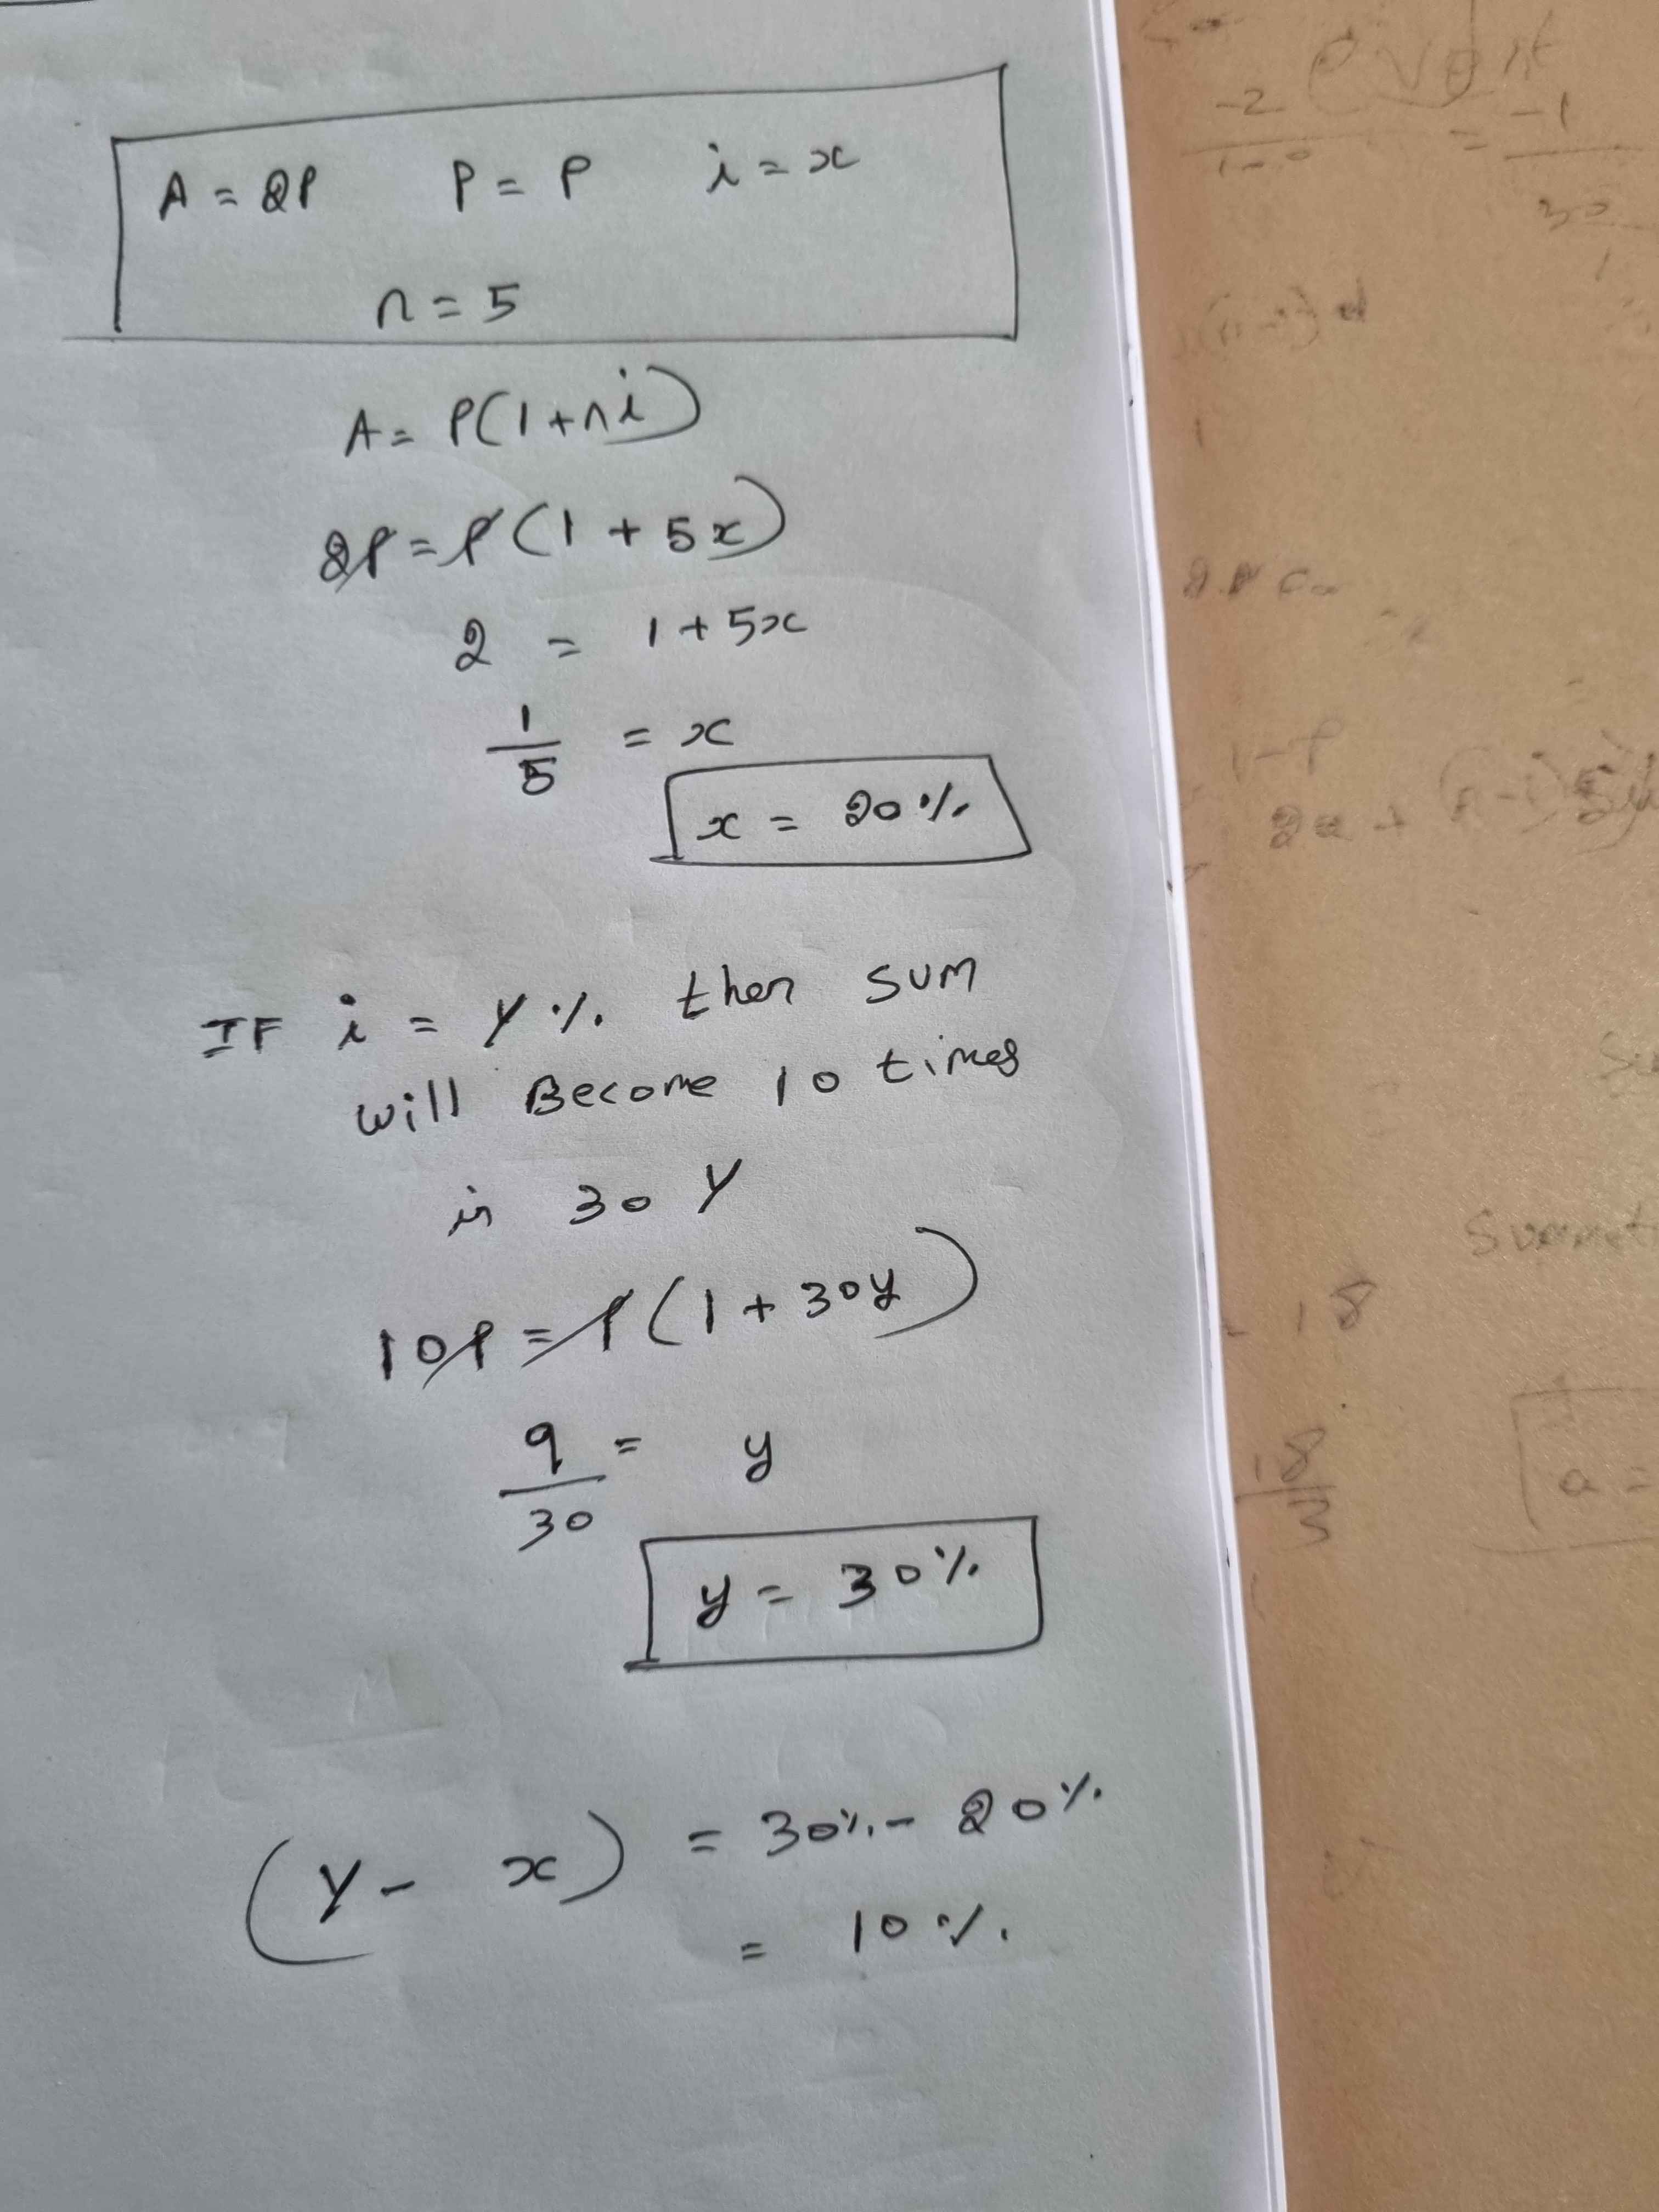 A = 2P P = P i = x
n = 5
A = P(1+ni)
2P = P(1 + 5x)
2 = 1 + 5x
1/5 = x
x = 20%
IF i = Y% then sum
will Become 10 times
in 30 Y
10P = P(1 + 30y)
9/30 = y
y = 30%
(Y - x) = 30% - 20%
= 10%
-2
= -1
30
(n-1)d
- 18
18
3
a =